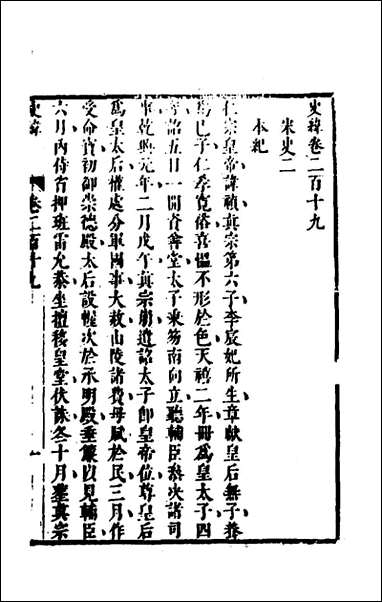 史緯卷二百十九
宋史二
本紀
仁宗皇帝諱禎真宗第六子李宸妃所生章獻皇后無子養
為己子仁孝寬裕喜慍不形於色天禧二年冊為皇太子四
年詔五日一開資善堂太子秉笏南向立聽輔臣叅決諸司
事乾興元年二月戊午真宗崩遺詔太子即皇帝位尊皇后
為皇太后權處分軍國事大赦山陵諸費毋賦於民三月作
受命寶初御崇德殿太后設幄次於承明殿垂簾以見輔臣
六月內侍省押班雷允恭坐擅移皇堂伏誅冬十月葬真宗
史緯
卷二百十九
一